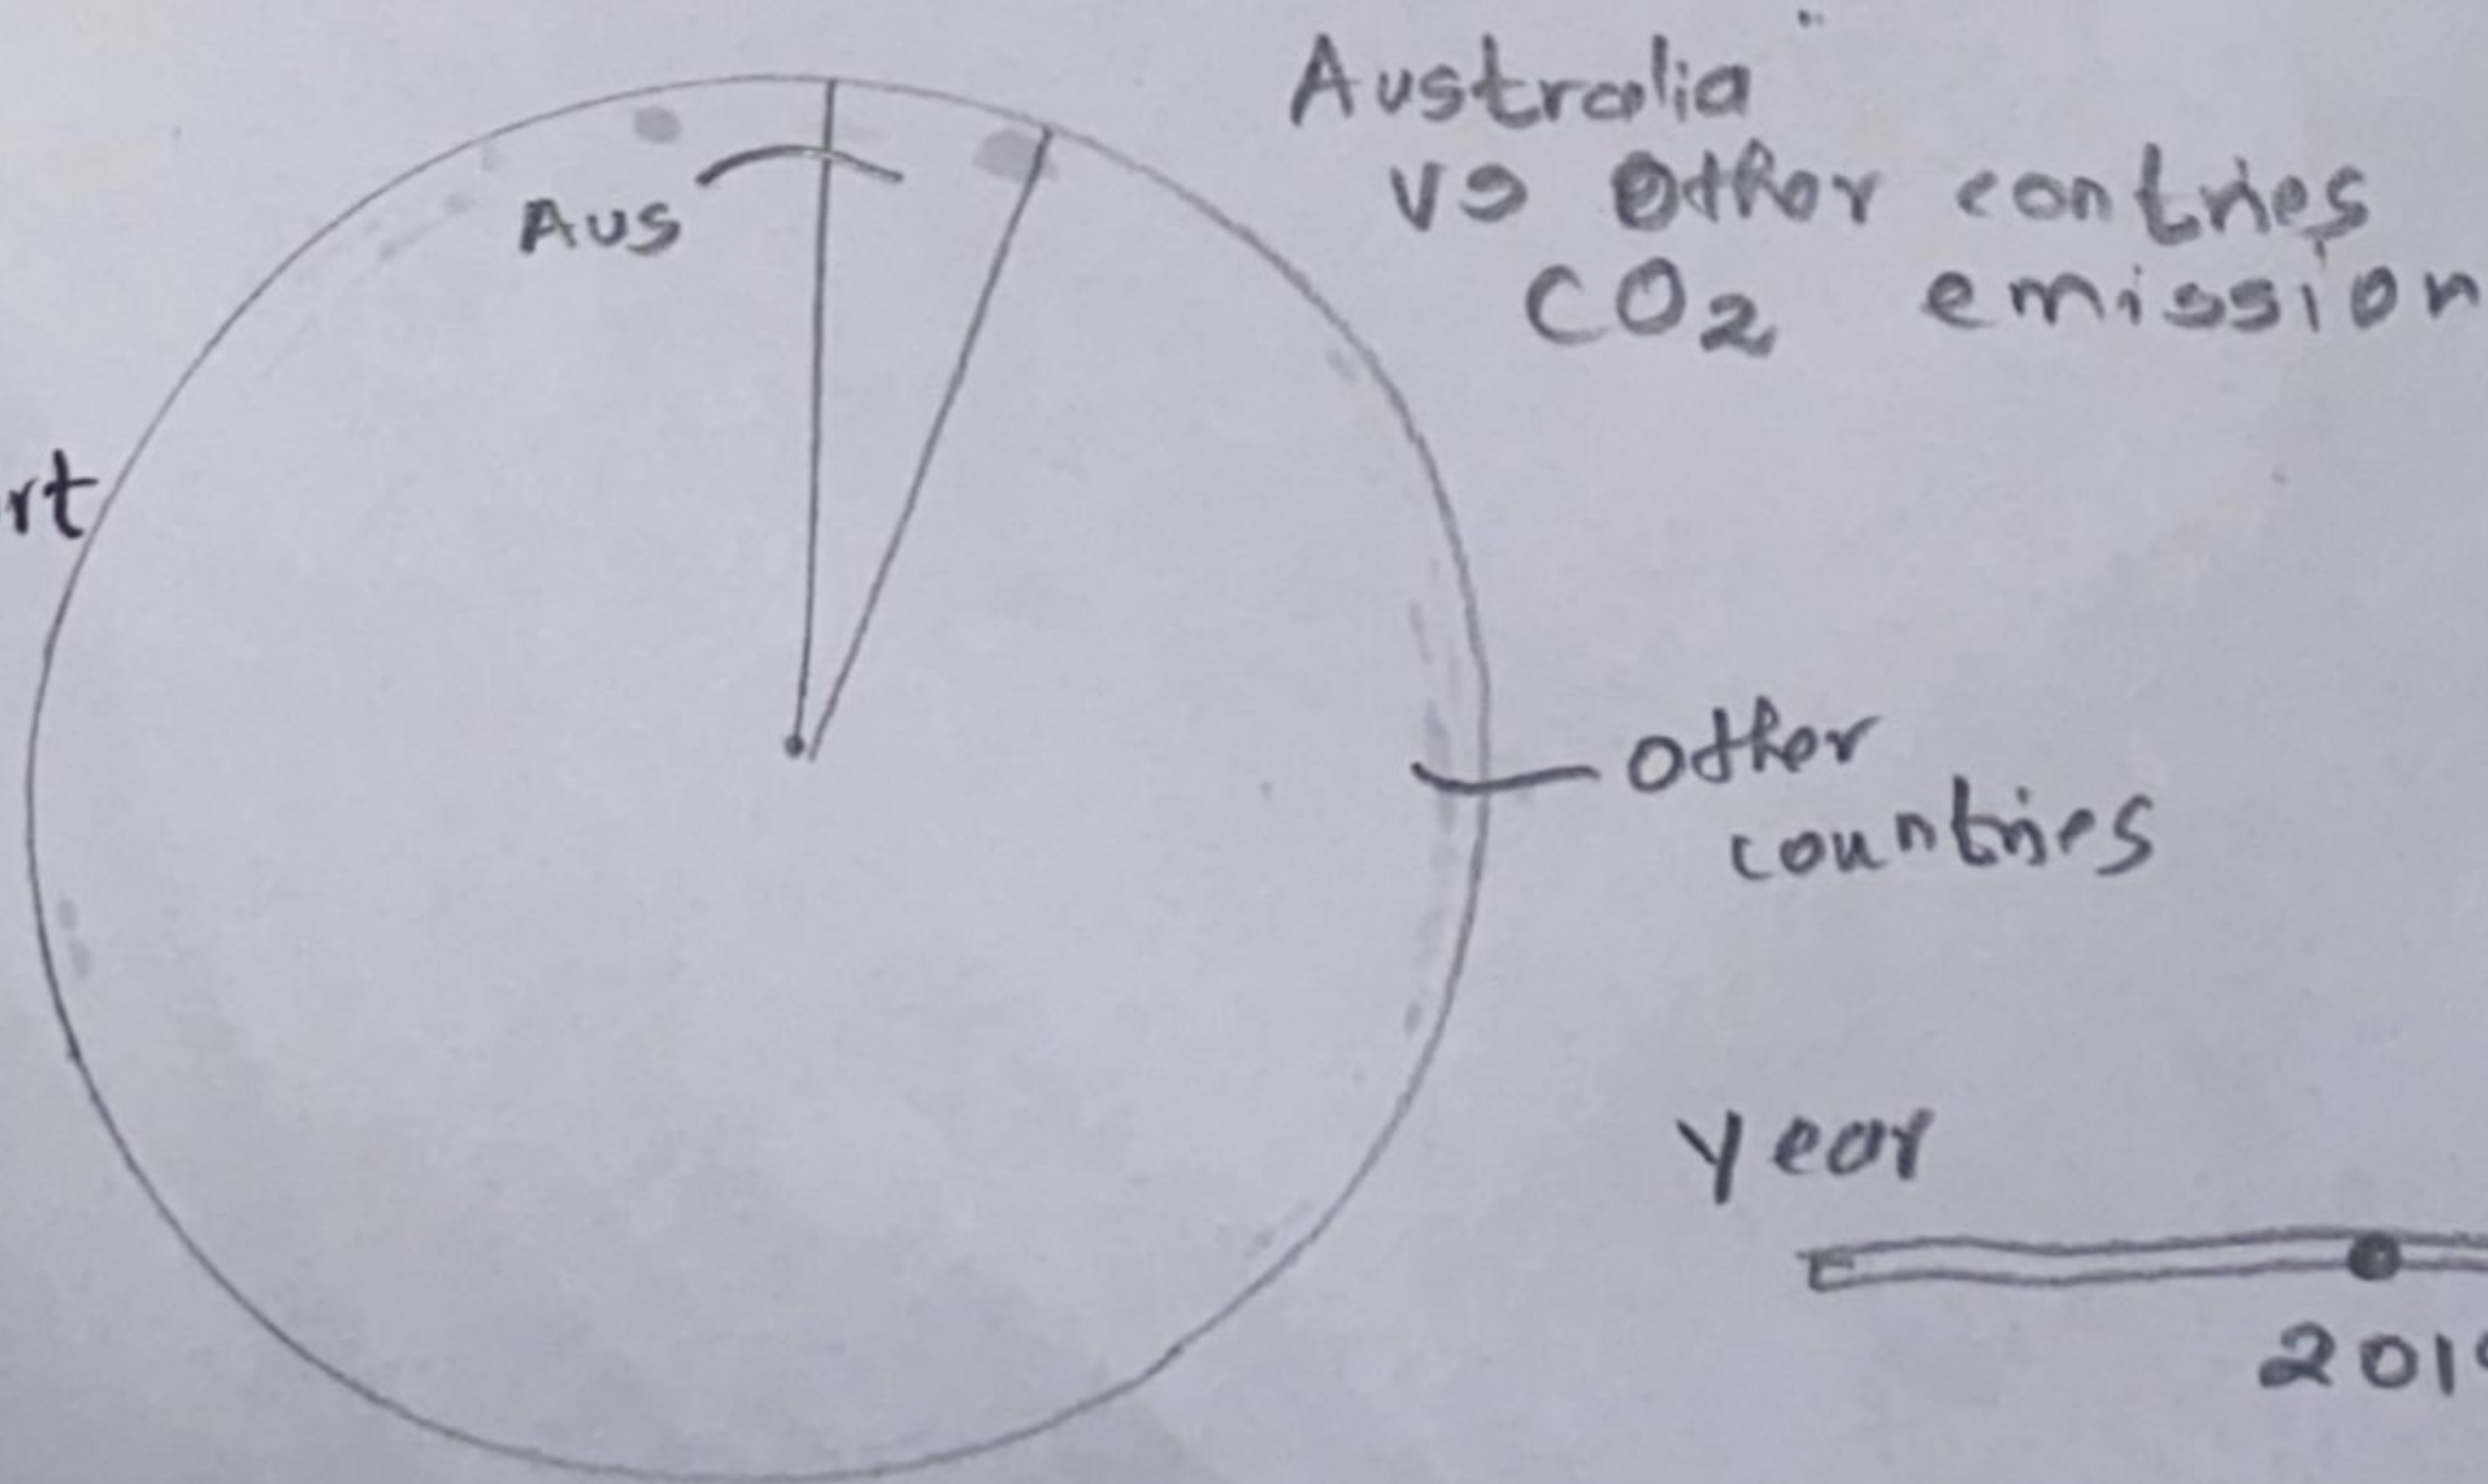 Australia
vs Other contries
CO2 emission
Aus
rt
other
countries
year
201